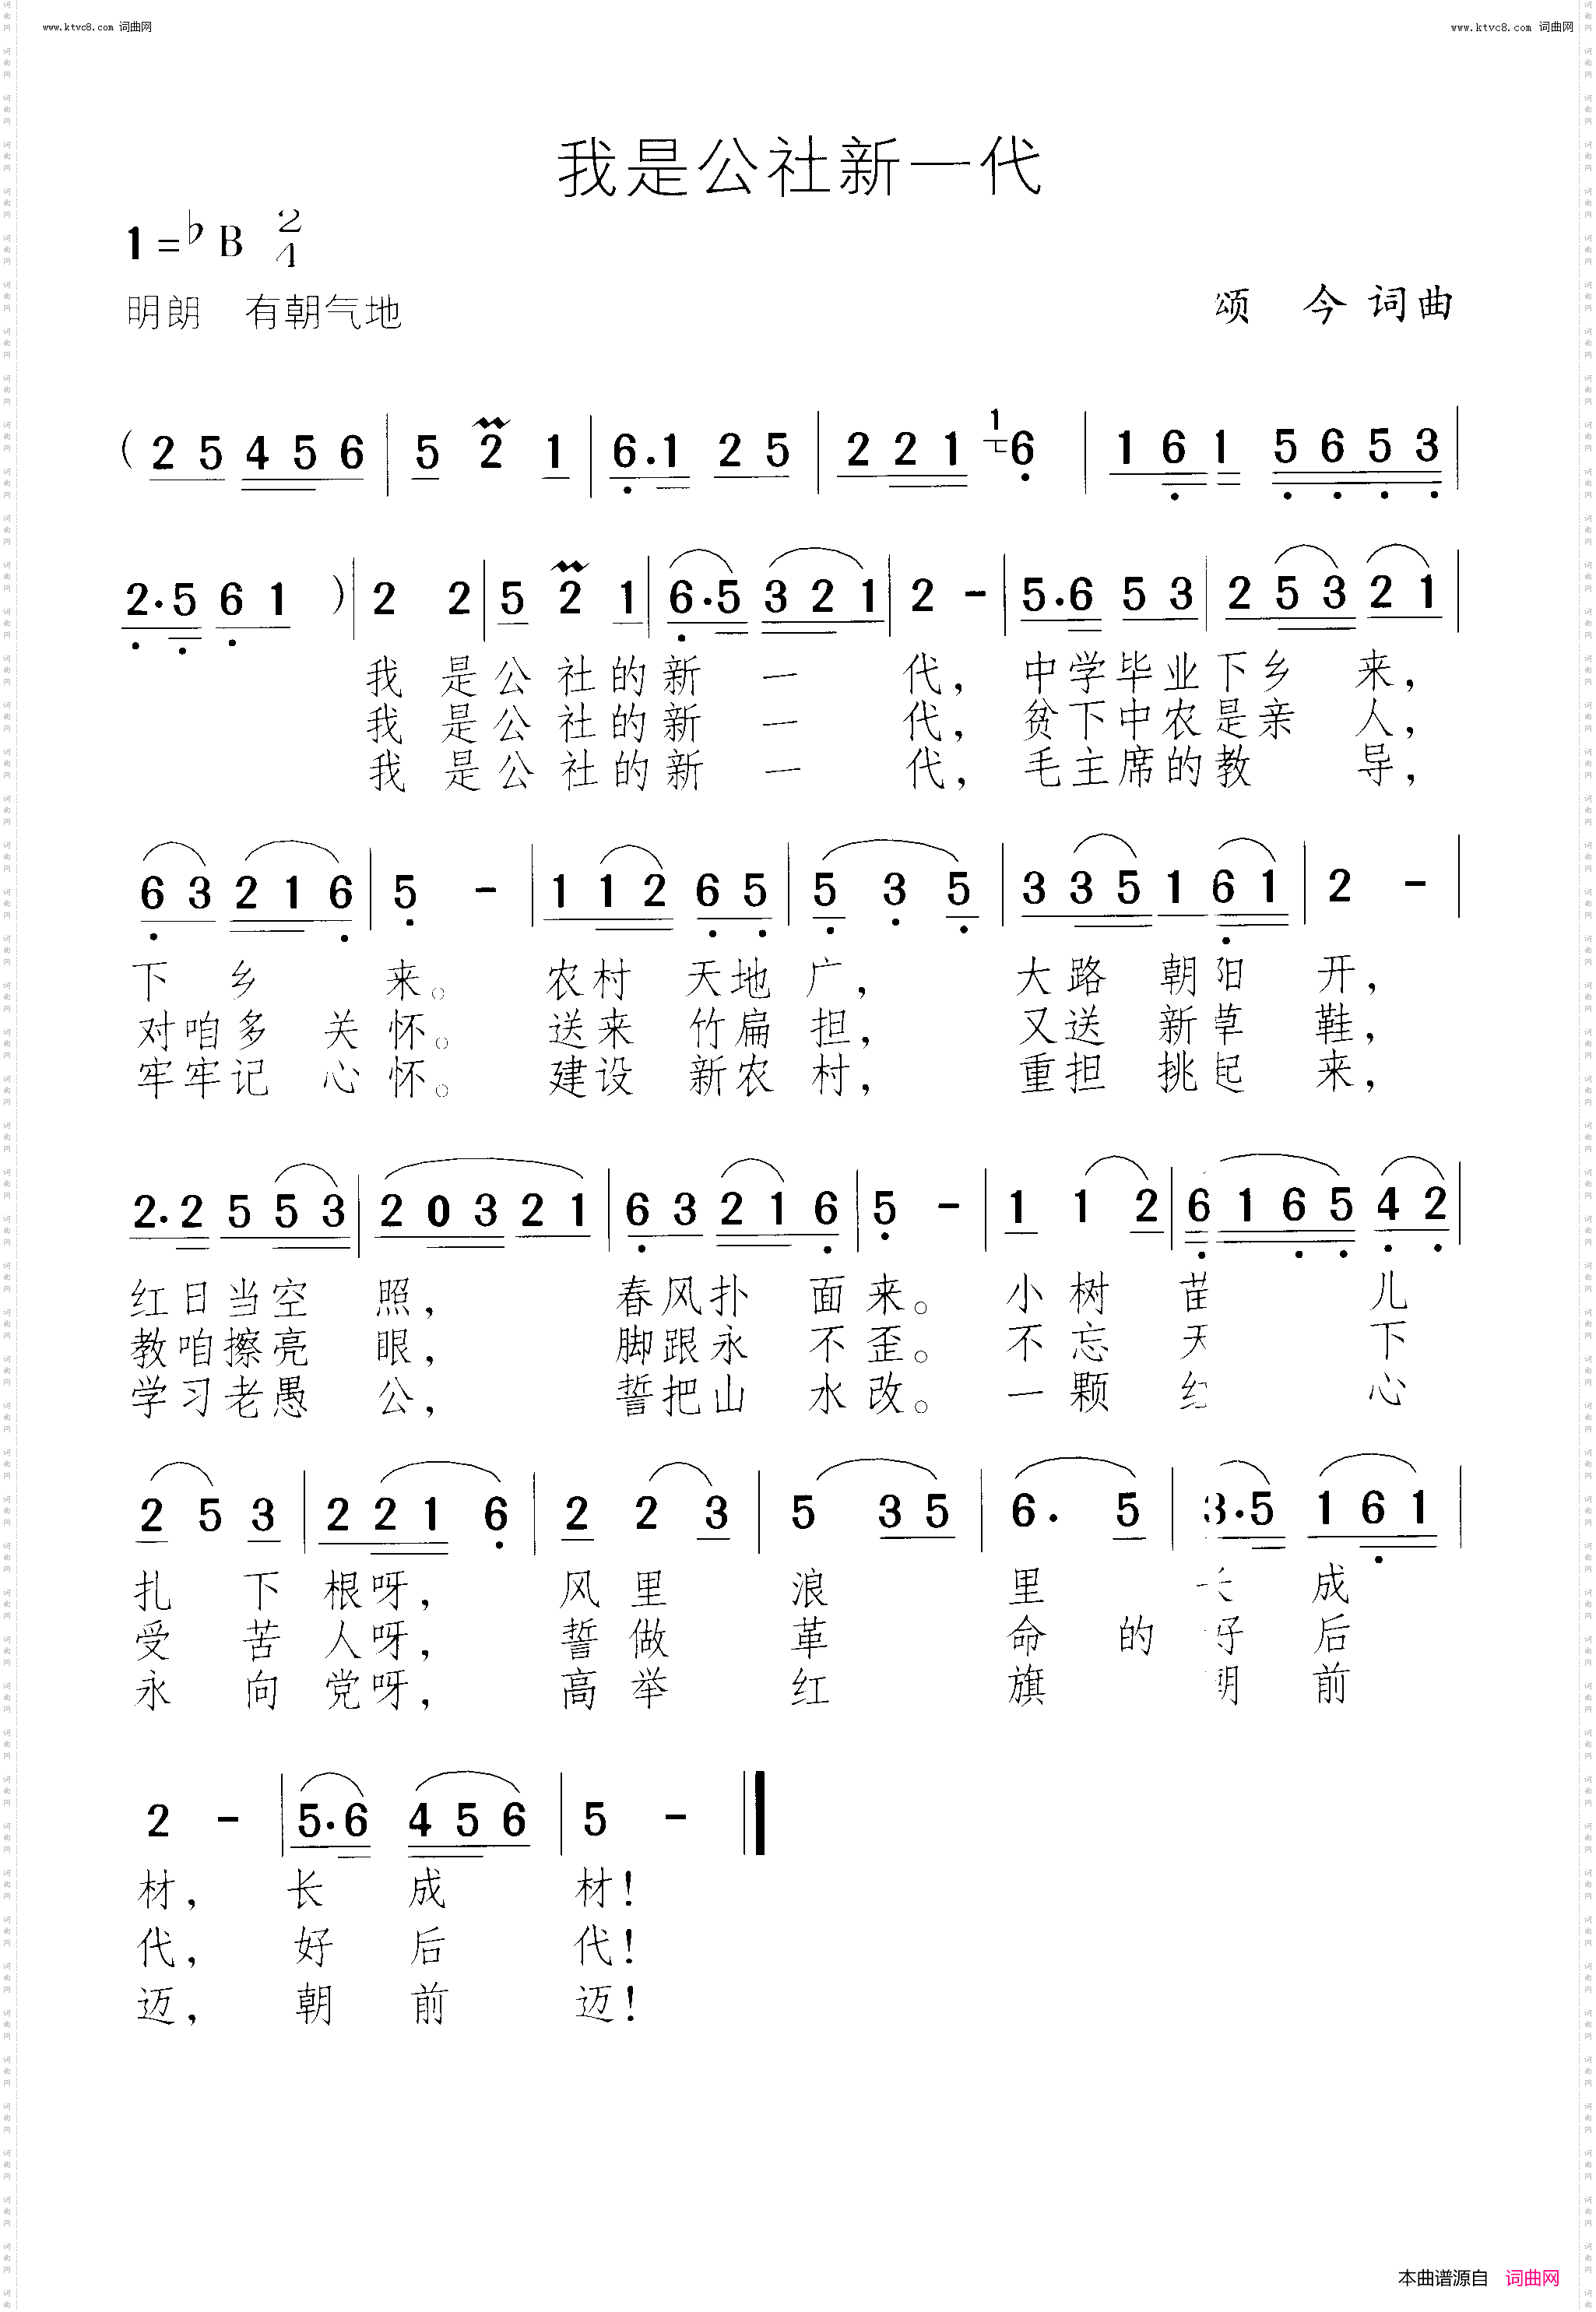 www.ktvc8.com 词曲网 www.ktvc8.com 词曲网
我是公社新一代
1=♭B 2/4
明朗 有朝气地 颂 今 词曲
( 2 5 4 5 6 | 5 2 1 | 6. 1 2 5 | 2 2 1 1 6 | 1 6 1 5 6 5 3 |
2. 5 6 1 ) | 2 2 | 5 2 1 | 6. 5 3 2 1 | 2 - | 5. 6 5 3 | 2 5 3 2 1 |
我 是 公 社 的 新 一 代, 中 学 毕 业 下 乡 来,
我 是 公 社 的 新 一 代, 贫 下 中 农 是 亲 人,
我 是 公 社 的 新 一 代, 毛 主 席 的 教 导,
6 3 2 1 6 | 5 - | 1 1 2 6 5 | 5 3 5 | 3 3 5 1 6 1 | 2 - |
下 乡 来。 农 村 天 地 广, 大 路 朝 阳 开,
对 咱 多 关 怀。 送 来 竹 扁 担, 又 送 新 草 鞋,
牢 牢 记 心 怀。 建 设 新 农 村, 重 担 挑 起 来,
2. 2 5 5 3 | 2 0 3 2 1 | 6 3 2 1 6 | 5 - | 1 1 2 | 6 1 6 5 4 2 |
红 日 当 空 照, 春 风 扑 面 来。 小 树 苗 儿
教 咱 擦 亮 眼, 脚 跟 永 不 歪。 不 忘 天 下
学 习 老 愚 公, 誓 把 山 水 改。 一 颗 红 心
2 5 3 | 2 2 1 6 | 2 2 3 | 5 3 5 | 6. 5 | 3. 5 1 6 1 |
扎 下 根 呀, 风 里 浪 里 长 成
受 苦 人 呀, 誓 做 革 命 的 好 后
永 向 党 呀, 高 举 红 旗 朝 前
2 - | 5. 6 4 5 6 | 5 - ‖
材, 长 成 材!
代, 好 后 代!
迈, 朝 前 迈!
本曲谱源自 词曲网